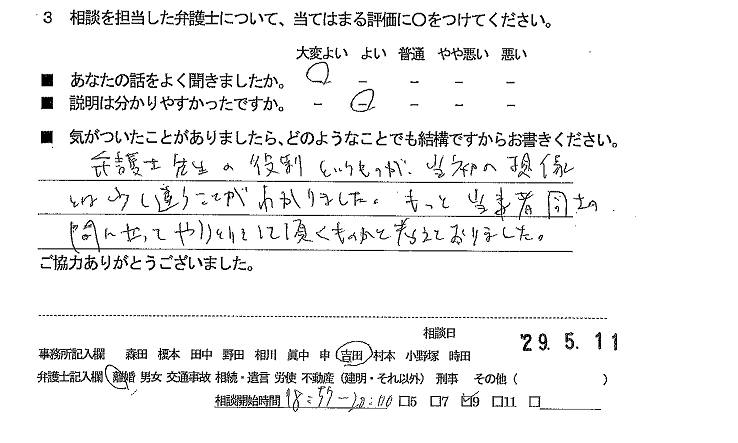 3 相談を担当した弁護士について、当てはまる評価に〇をつけてください。
大変よい よい 普通 やや悪い 悪い
■ あなたの話をよく聞きましたか。 － － － － －
■ 説明は分かりやすかったですか。 － － － － －
■ 気がついたことがありましたら、どのようなことでも結構ですからお書きください。
弁護士先生の役割というものが、当初の想像
とは少し違うことがわかりました。もっと当事者同士の
間に立ってやりとりをして頂くものかと考えておりました。
ご協力ありがとうございました。
相談日 '29.5.11
事務所記入欄 森田 榎本 田中 野田 相川 眞中 申 吉田 村本 小野塚 時田
弁護士記入欄 離婚 男女 交通事故 相続・遺言 労使 不動産（建明・それ以外） 刑事 その他（ ）
相談開始時間 18:55-20:00 □5 □7 ☑9 □11 □